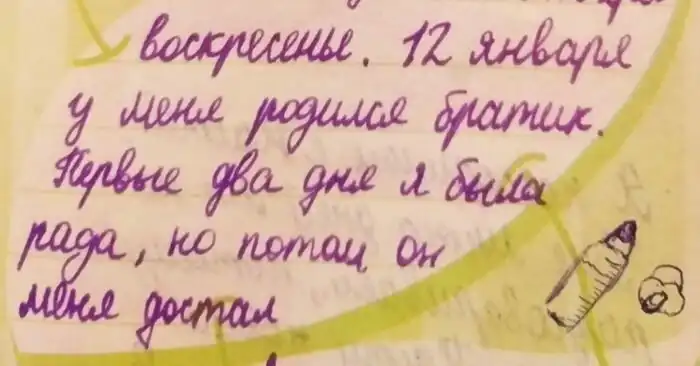 воскресенье. 12 января
у меня родился братик.
Первые два дня я была
рада, но потом он
меня достал